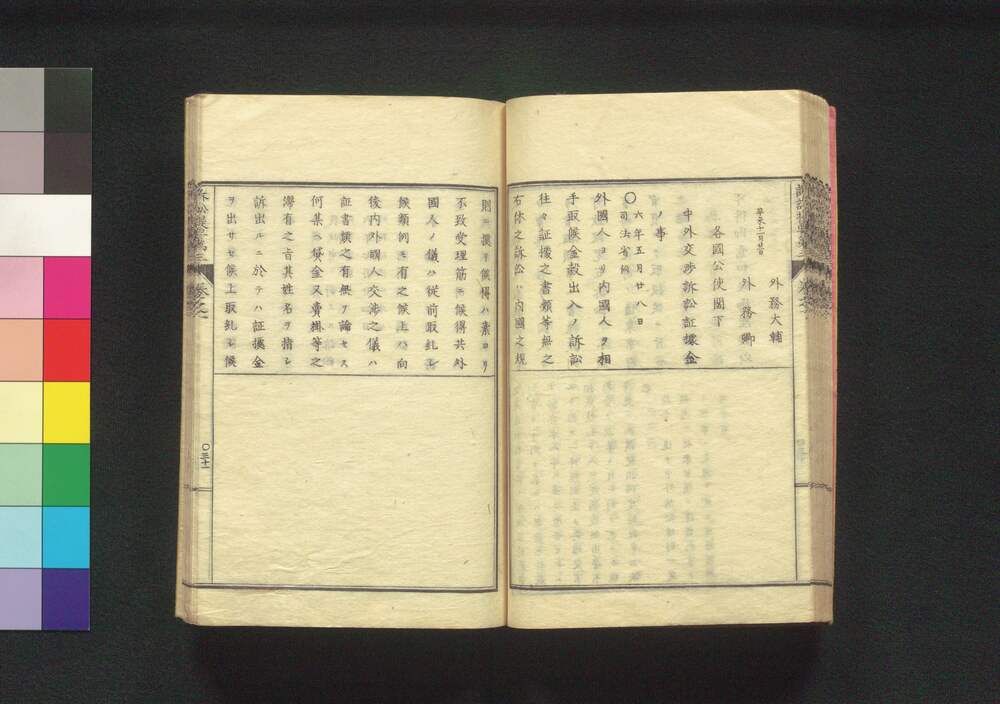 外務大輔
辛未十一月廿日 外務卿
各國公使閣下
中外交渉訴訟証據金
ノ事
〇六年五月廿八日
司法省
外國人ヨリ内國人ヲ相
手取候金穀出入ノ訴訟
往々証據之書類等無之
右体之訴訟ハ内國之規
則ニ據リ候得ハ素ヨリ
不致受理筋ニ候得共外
國人ノ儀ハ從前取糺シ
候類例モ有之候上ハ向
後内外國人交渉之儀ハ
証書類之有無ヲ論セス
何某ヘ貸金又賣掛等之
滯有之旨其姓名ヲ指シ
訴出ルニ於テハ証據金
ヲ出サセ候上取糺シ候
〇三十一